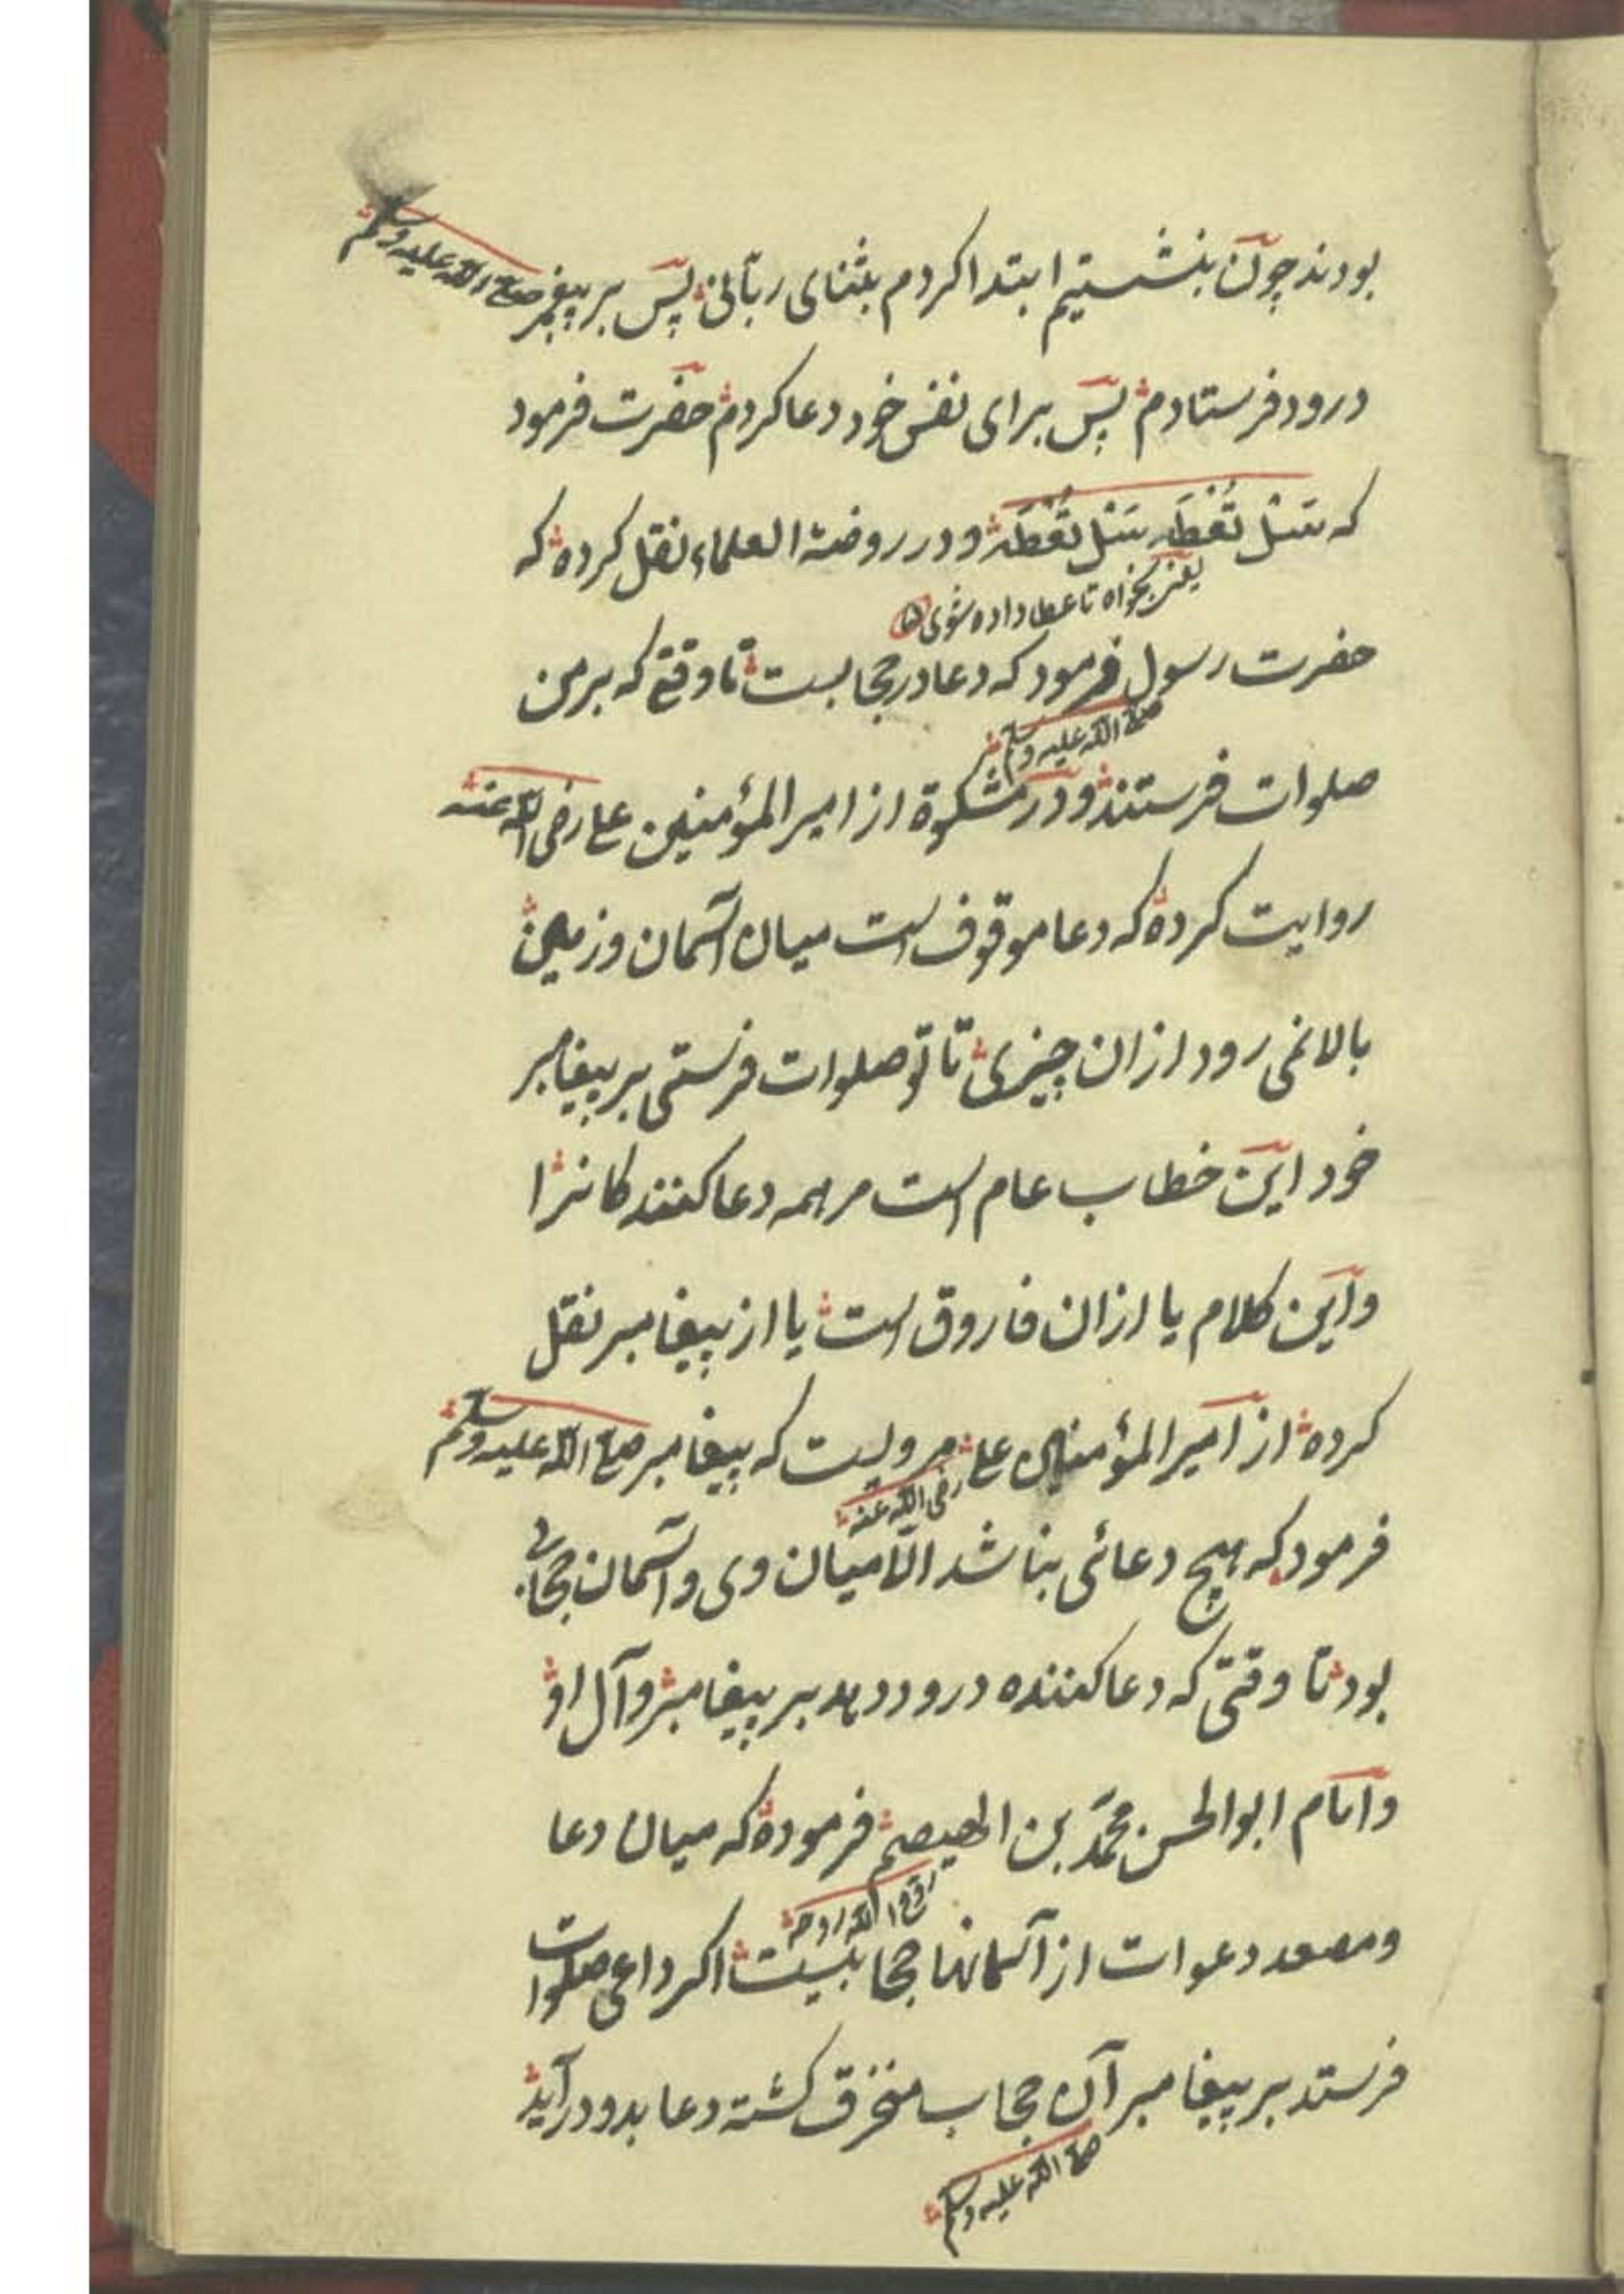 بودند چون بنشستیم ابتدا کردم بثنای ربّانی پس بر پیغمبر صلی الله علیه وسلم
درود فرستادم پس برای نفس خود دعا کردم حضرت فرمود
که سَئل تُعْطَه سَئل تُعْطَه و در روضة العلماء نقل کرده که
یعنی بخواه تا عطا داده شوی
حضرت رسول فرمود که دعا در حجابست تا وقتی که بر من
صلی الله علیه وسلم
صلوات فرستند و در مشکوة از امیر المؤمنین علی رضی الله عنه
روایت کرده که دعا موقوف است میان آسمان و زمین
بالا نمی رود از ان چیزی تا تو صلوات فرستی بر پیغامبر
خود این خطاب عام است مر همه دعا کنند کانرا
و این کلام یا از ان فاروق است یا از پیغامبر نقل
کرده از امیر المؤمنین علی مرویست که پیغامبر صلی الله علیه وسلم
رضی الله عنه
فرمود که هیچ دعائی بناشد الّا میان وی و آسمان حجابی
بود تا وقتی که دعا کننده درود دهد بر پیغامبر و آل او
و امام ابو الحسن محمّد بن الهیصم فرموده که میان دعا
روح الله روحه
و مصعد دعوات از آسمانها حجابیست اکر داعی صلوات
فرستد بر پیغامبر آن حجاب منخرق کشته دعا بدو در آید
صلی الله علیه وسلم